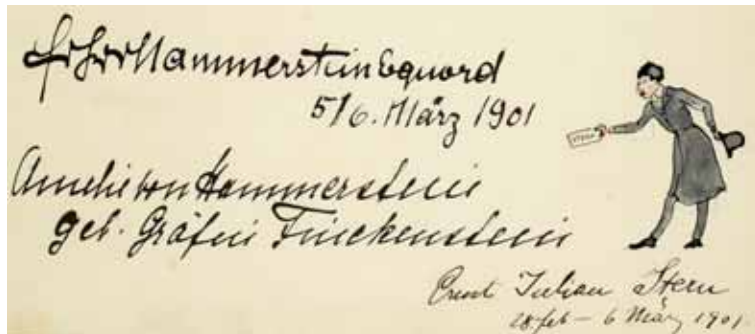 FrhrvHammersteinEquord
5/6. März 1901
Amelie von Hammerstein
geb. Gräfin Finckenstein
STERN
Ernst Julian Stern
28. feb – 6 März 1901.